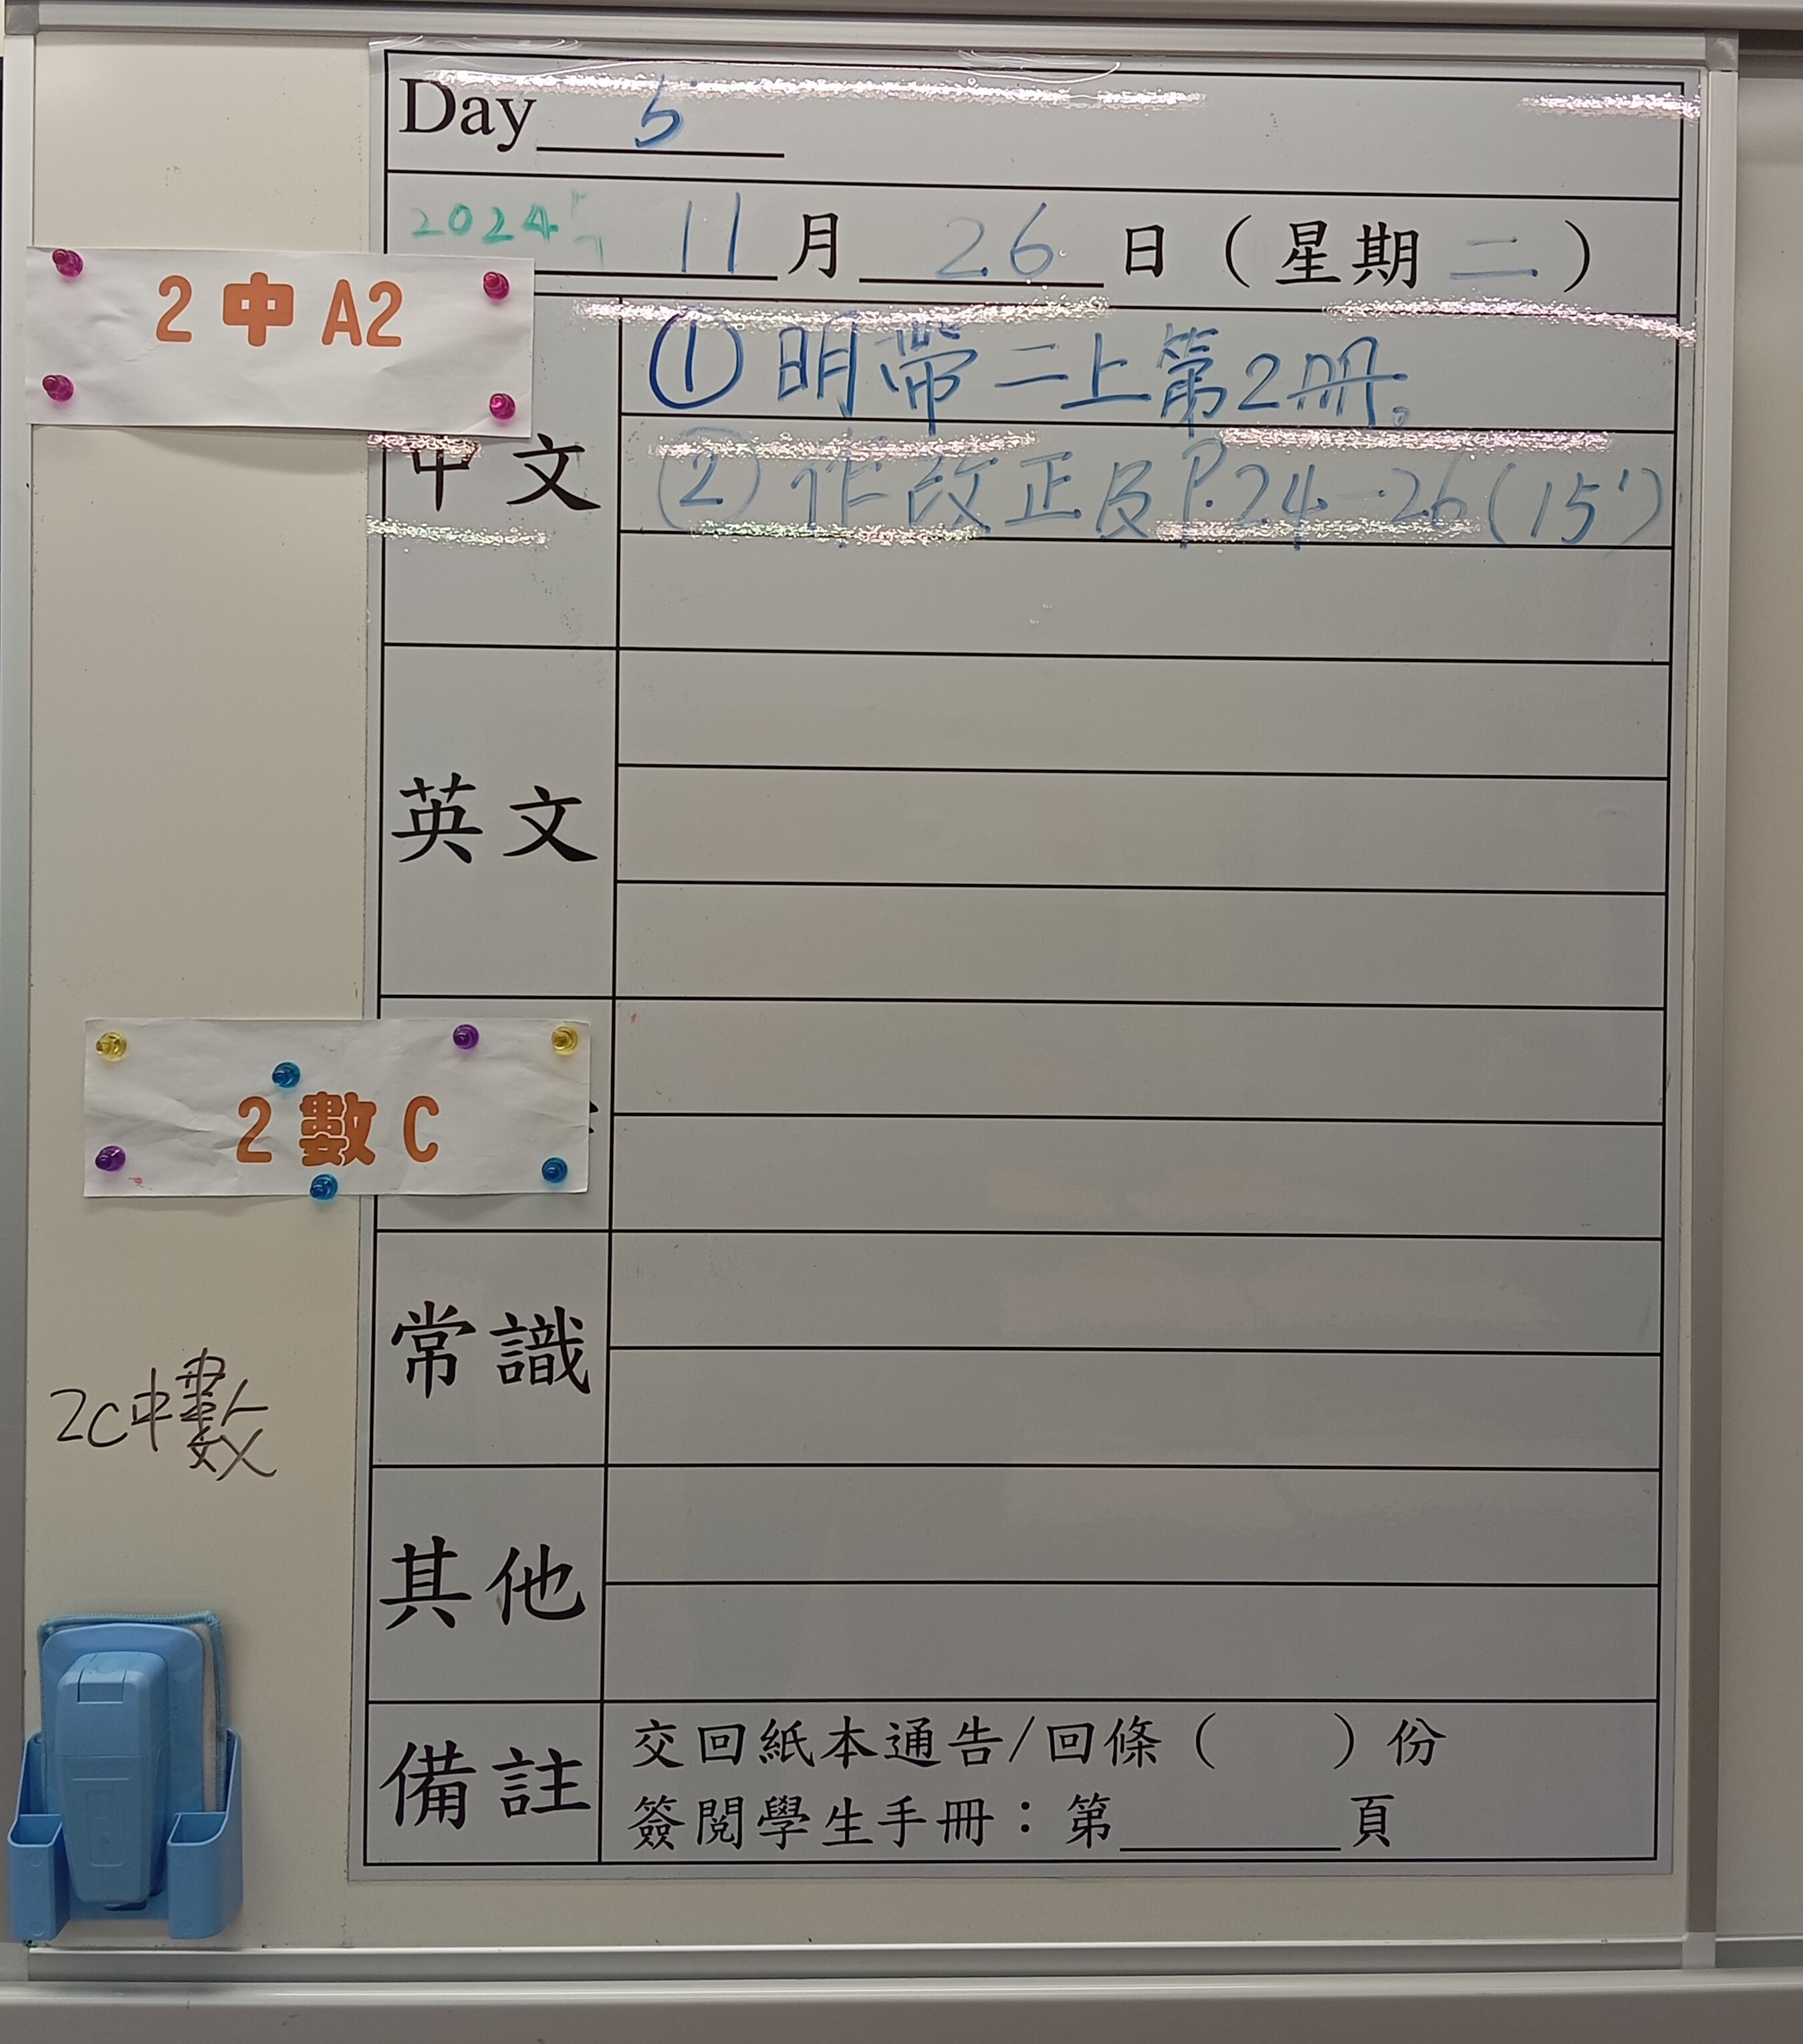 Day 5
2024年 11月 26日（星期二）
2中A2
①明帶二上第2冊。
中文
②作改正及P.24-26(15')
英文
2數C
常識
2C中數
其他
備註
交回紙本通告/回條（ ）份
簽閱學生手冊：第____頁